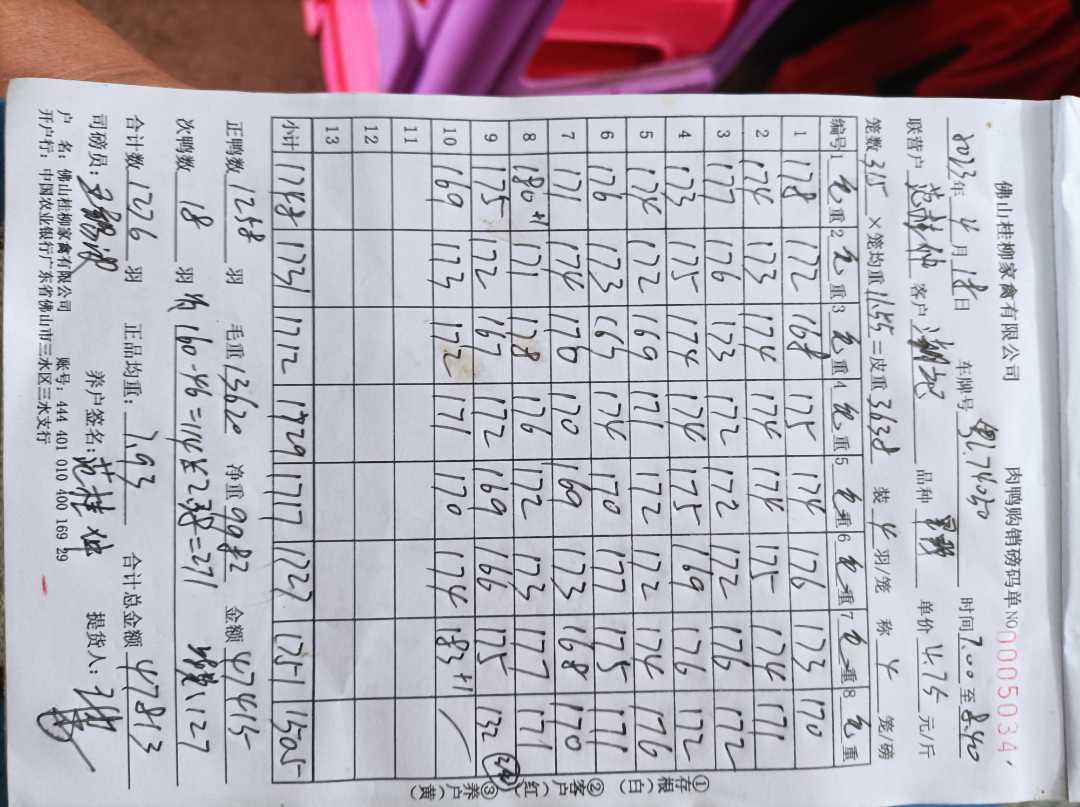 佛山桂柳家禽有限公司 肉鸭购销磅码单 NO 0005034
2023年 4月18日 车牌号 粤L74030 时间 7:00 至 8:40
联营户 范桂仲 客户 品种 单价 4.75 元/斤
笼数 315 ×笼均重 11.55 =皮重 3638 装 4 羽/笼 称 4 笼/磅
编号 1毛重 2毛重 3毛重 4毛重 5毛重 6毛重 7毛重 8毛重
1 178 172 168 175 174 176 173 170
2 174 173 174 174 174 175 174 171
3 177 176 173 172 172 172 176 172
4 173 175 174 174 175 169 176 172
5 174 172 169 171 172 172 174 176
6 176 173 174 170 177 175 171
7 171 174 176 170 169 173 168 170
8 180+1 171 178 176 172 173 177 171
9 175 172 167 172 169 166 175 132
10 169 173 172 171 170 174 183+1
11
12
13
小计 1748 1731 1712 1729 1717 1727 1751 1505
正鸭数 1258 羽 毛重 13620 净重 9982 金额 47415
次鸭数 18 羽 160-46=114×2.38=271 127
合计数 1276 羽 正品均重: 7.93 合计总金额 47813
司磅员: 养户签名: 范桂仲 提货人:
户 名: 佛山桂柳家禽有限公司 账号: 444 401 010 400 169 29
开户行: 中国农业银行广东省佛山市三水区三水支行
①存根(白) ②客户(红) ③养户(黄)